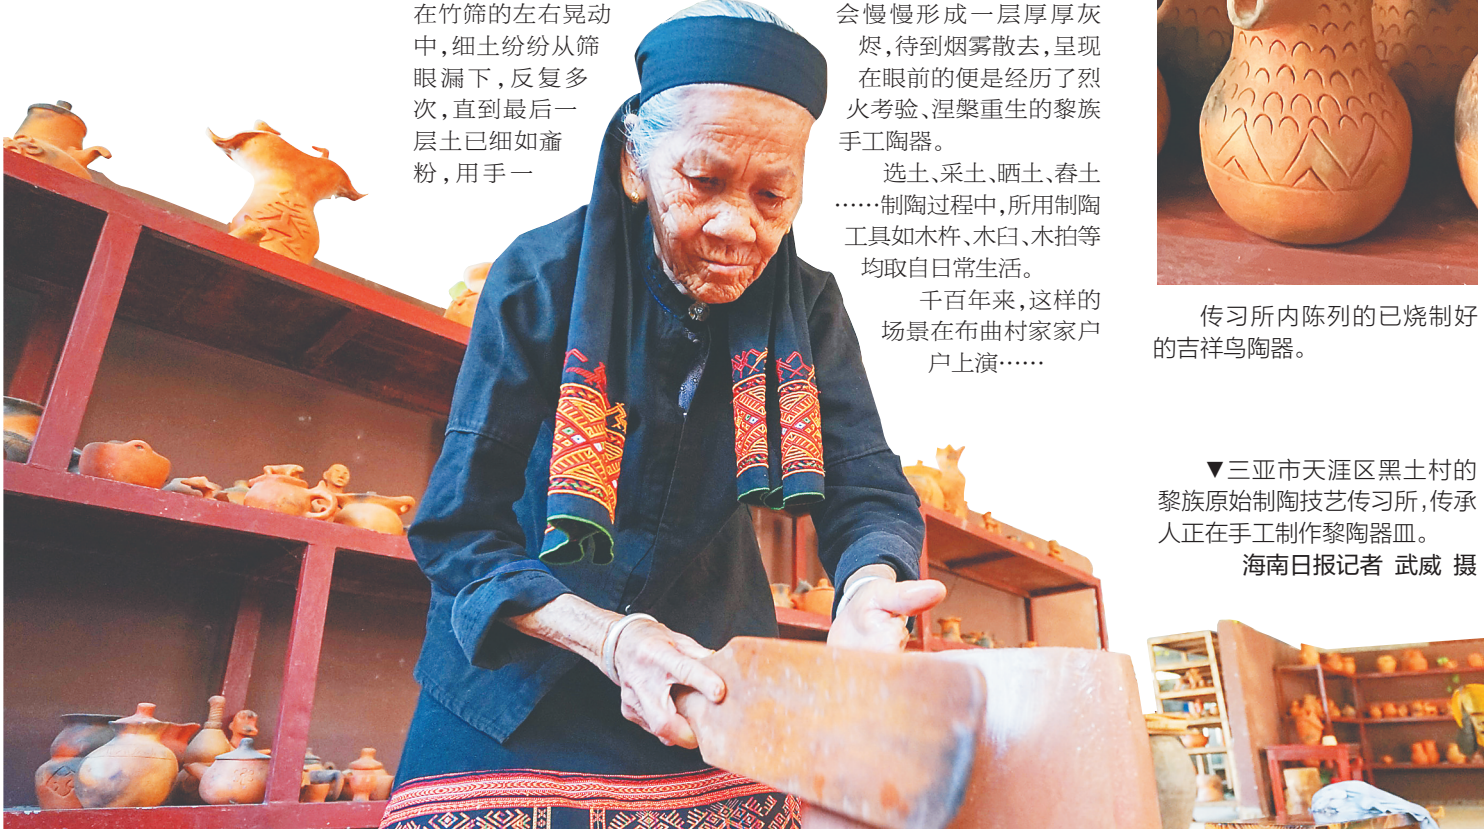 在竹筛的左右晃动
中,细土纷纷从筛
眼漏下,反复多
次,直到最后一
层土已细如齑
粉,用手一
会慢慢形成一层厚厚灰
烬,待到烟雾散去,呈现
在眼前的便是经历了烈
火考验、涅槃重生的黎族
手工陶器。
选土、采土、晒土、舂土
……制陶过程中,所用制陶
工具如木杵、木臼、木拍等
均取自日常生活。
千百年来,这样的
场景在布曲村家家户
户上演……
传习所内陈列的已烧制好
的吉祥鸟陶器。
▼三亚市天涯区黑土村的
黎族原始制陶技艺传习所,传承
人正在手工制作黎陶器皿。
海南日报记者 武威 摄